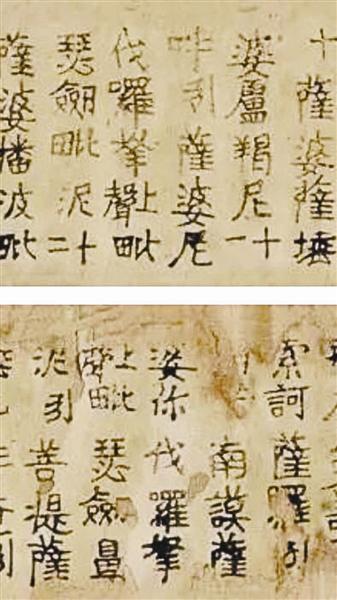 十薩婆薩埵
婆盧羯尼十一
吽引薩婆尼
伐羅拏上聲毗
瑟劒毗泥十二
薩婆播波毗
索訶薩羅引
南謨薩
婆你伐羅拏
瑟劒鼻
泥引菩提薩